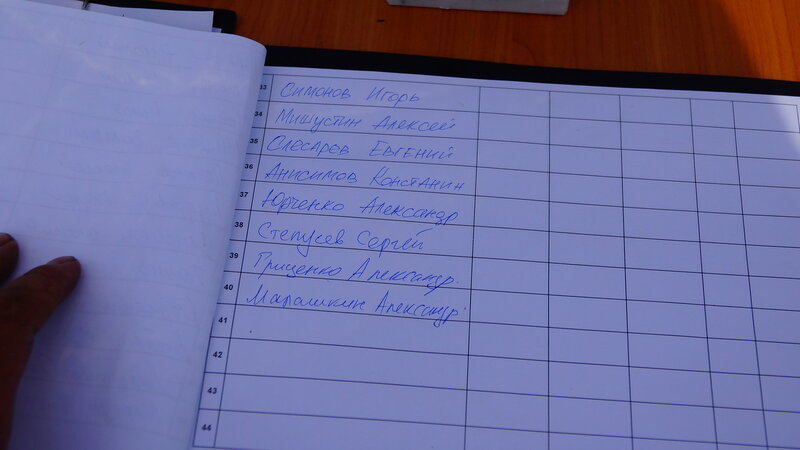 33 Симонов Игорь
34 Мишустин Алексей
35 Слесарев Евгений
36 Анисимов Констанин
37 Юрченко Александр
38 Степусев Сергей
39 Гриценко Александр
40 Марашкин Александр
41
42
43
44